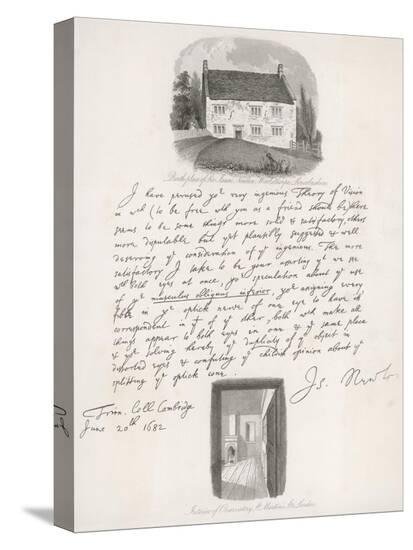 Birth place of Sir Isaac Newton, Woolsthorpe, Lincolnshire
I have perused yor very ingenious Theory of Vision
in wch (to be free with you as a friend should be) there
seems to be some things more solid & satisfactory, others
more disputable but yet plausibly suggested & well
deserving ye consideration of ye ingenious. The more
satisfactory I take to be your asserting yt we see
with both eyes at once, yor speculation about ye use
of ye musculus obliquus inferior, yor assigning every
fibre in ye optick nerve of one eye to have its
correspondent in yt of ye other, both wch make all
things appear to both eyes in one & ye same place
& yor solving hereby ye duplicity of ye object in
distorted eyes & confuting ye childish opinion about ye
splitting ye optick cone.
Is. Newton
Trin. Coll Cambridge
June 20th 1682
Interior of Observatory, St. Martin's St. London